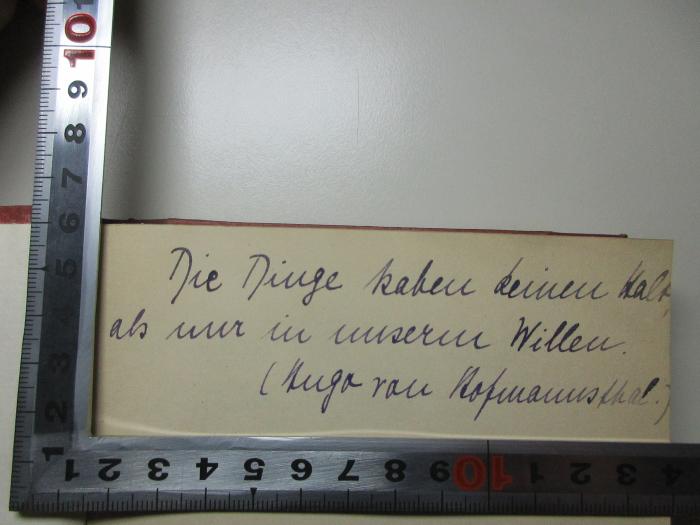 Die Dinge haben keinen Halt,
als nur in unserm Willen.
(Hugo von Hofmannsthal.)
10
9
8
7
6
5
4
3
2
1
1 2 3 4 5 6 7 8 9 10 1 2 3 4